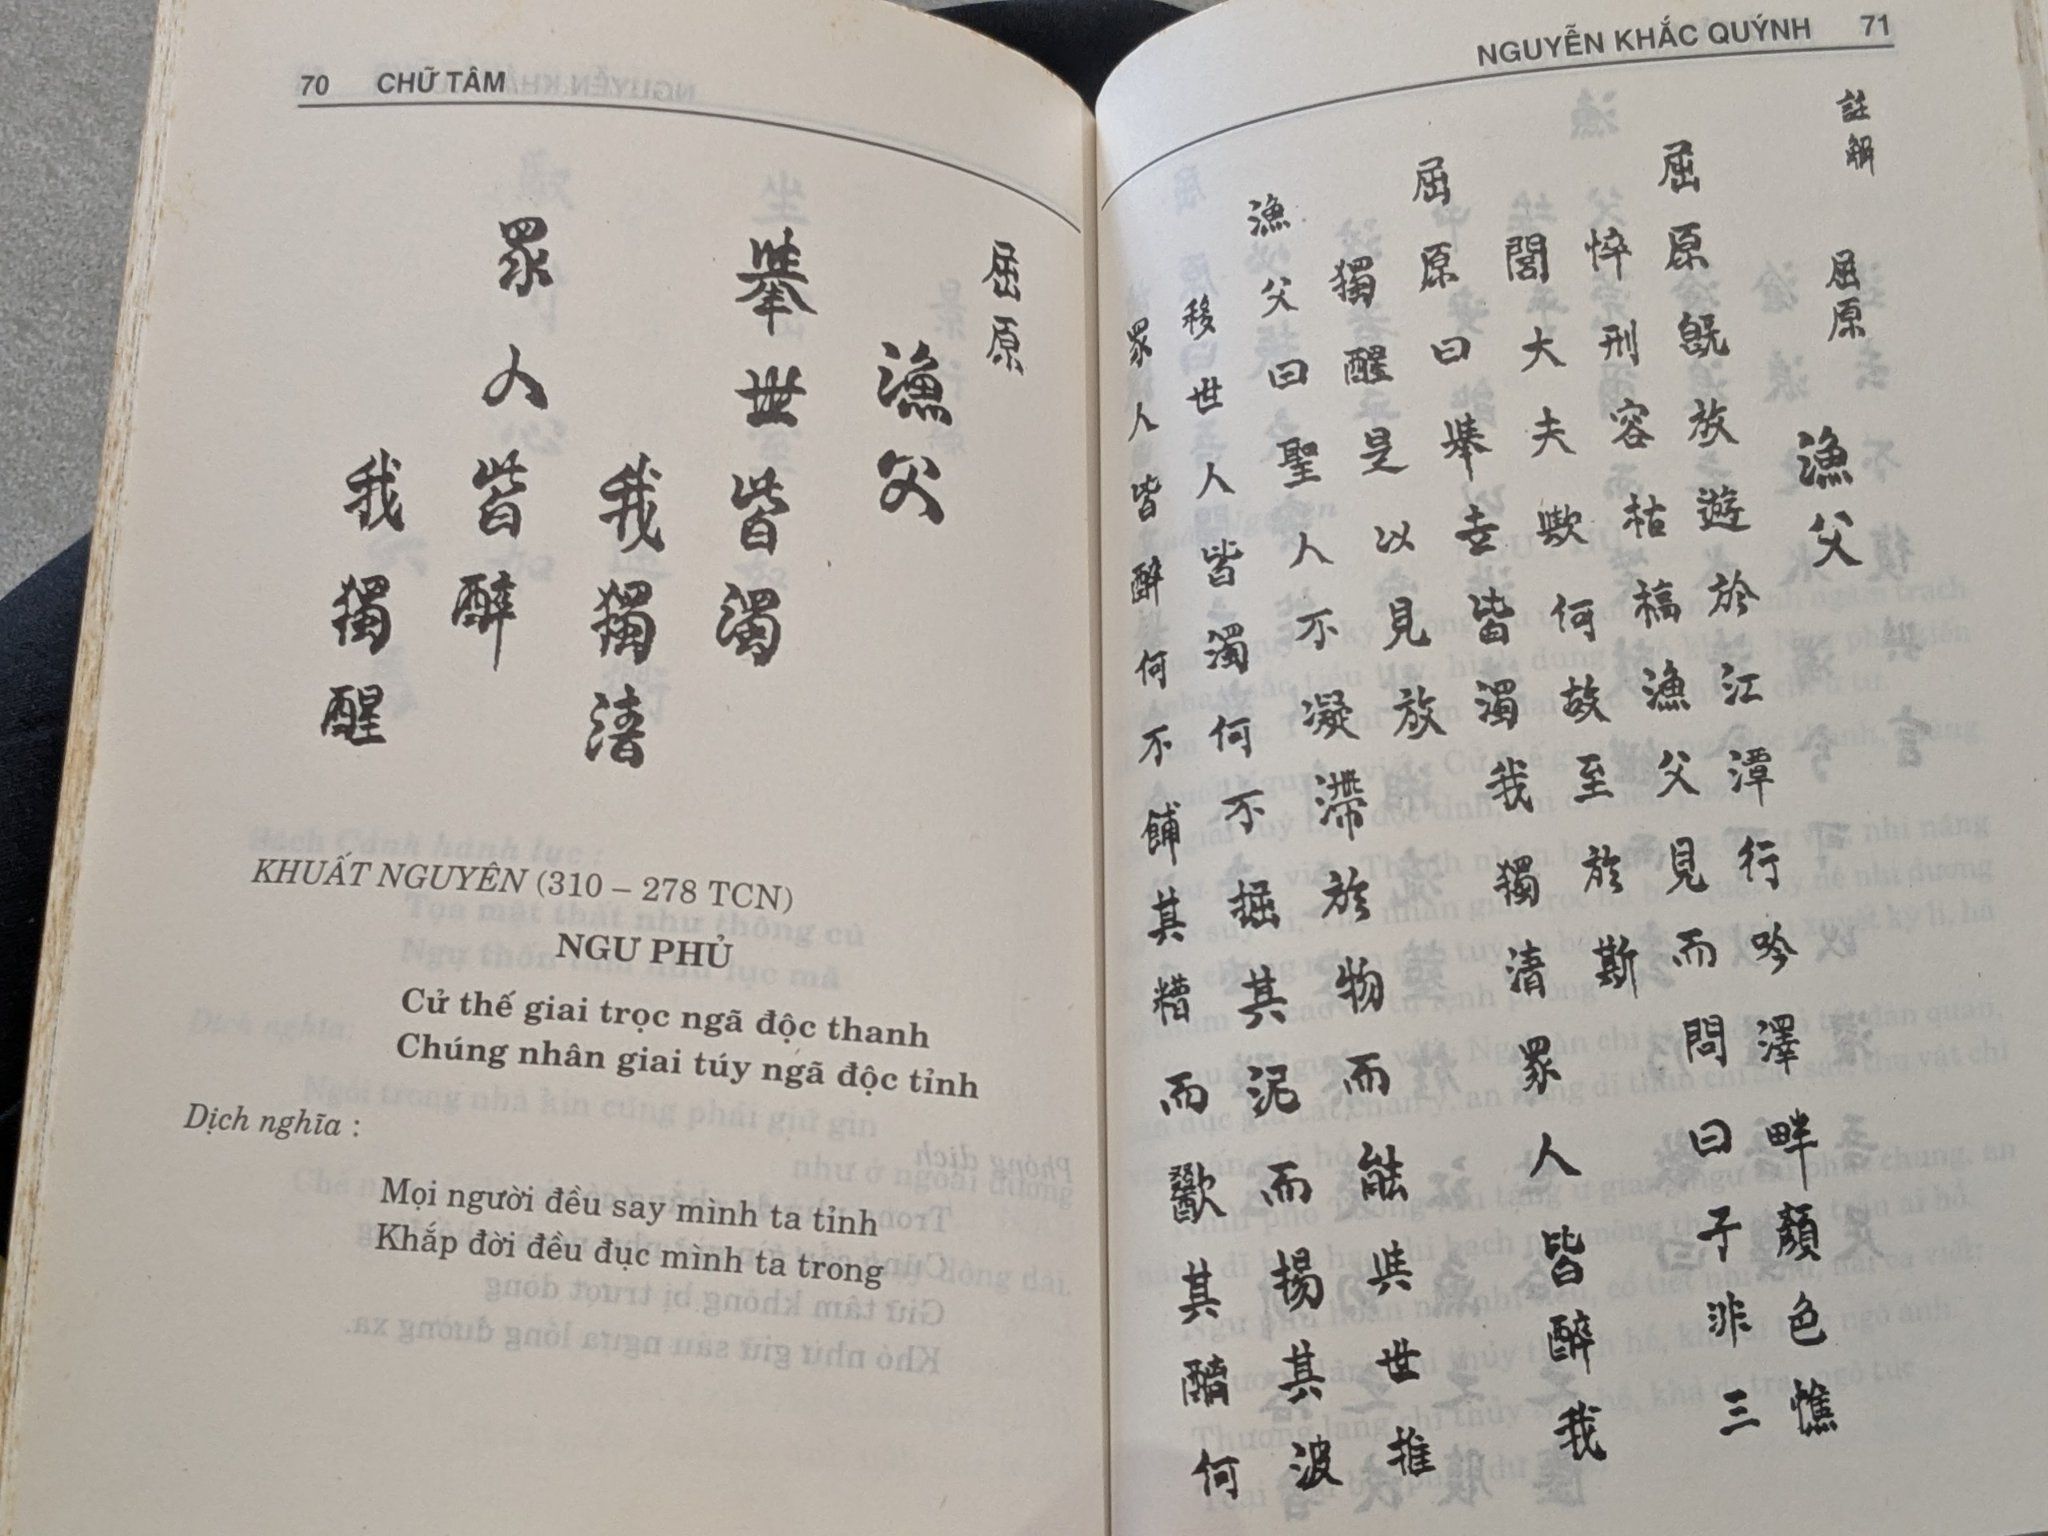 70 CHỮ TÂM
屈原
漁父
舉世皆濁
我獨清
眾人皆醉
我獨醒
KHUẤT NGUYÊN (310 – 278 TCN)
NGƯ PHỦ
Cử thế giai trọc ngã độc thanh
Chúng nhân giai túy ngã độc tỉnh
Dịch nghĩa :
Mọi người đều say mình ta tỉnh
Khắp đời đều đục mình ta trong
NGUYỄN KHẮC QUÝNH 71
註解 屈原 漁父
屈原既放遊於江潭行吟澤畔顏色憔
悴刑容枯槁漁父見而問曰子非三
閭大夫歟何故至於斯
屈原曰舉世皆濁我獨清眾人皆醉我
獨醒是以見放
漁父曰聖人不凝滯於物而能與世推
移世人皆濁何不掘其泥而揚其波
眾人皆醉何不餔其糟而歠其醨何